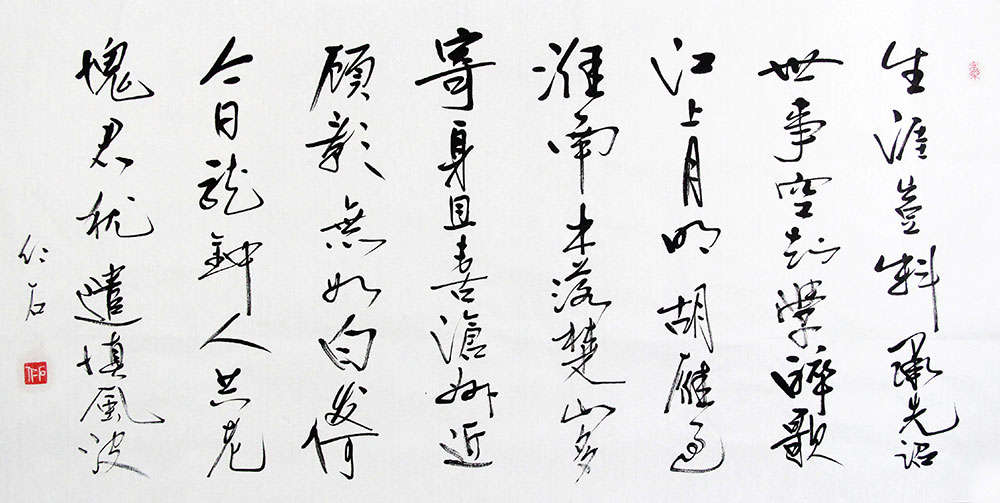 生涯豈料承优詔
世事空知學醉歌
江上月明胡雁过
淮南木落楚山多
寄身且喜滄洲近
顾影無如白发何
今日龙鍾人共老
愧君犹遣慎風波
仁石